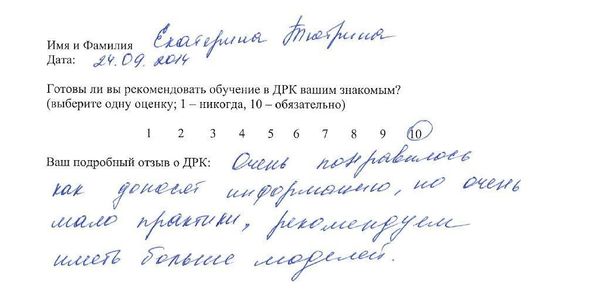 Имя и Фамилия Екатерина Тютрина
Дата: 24.09.2014
Готовы ли вы рекомендовать обучение в ДРК вашим знакомым?
(выберите одну оценку; 1 – никогда, 10 – обязательно)
1 2 3 4 5 6 7 8 9 10
Ваш подробный отзыв о ДРК: Очень понравилось
как доносят информацию, но очень
мало практики, рекомендуем
иметь больше моделей.